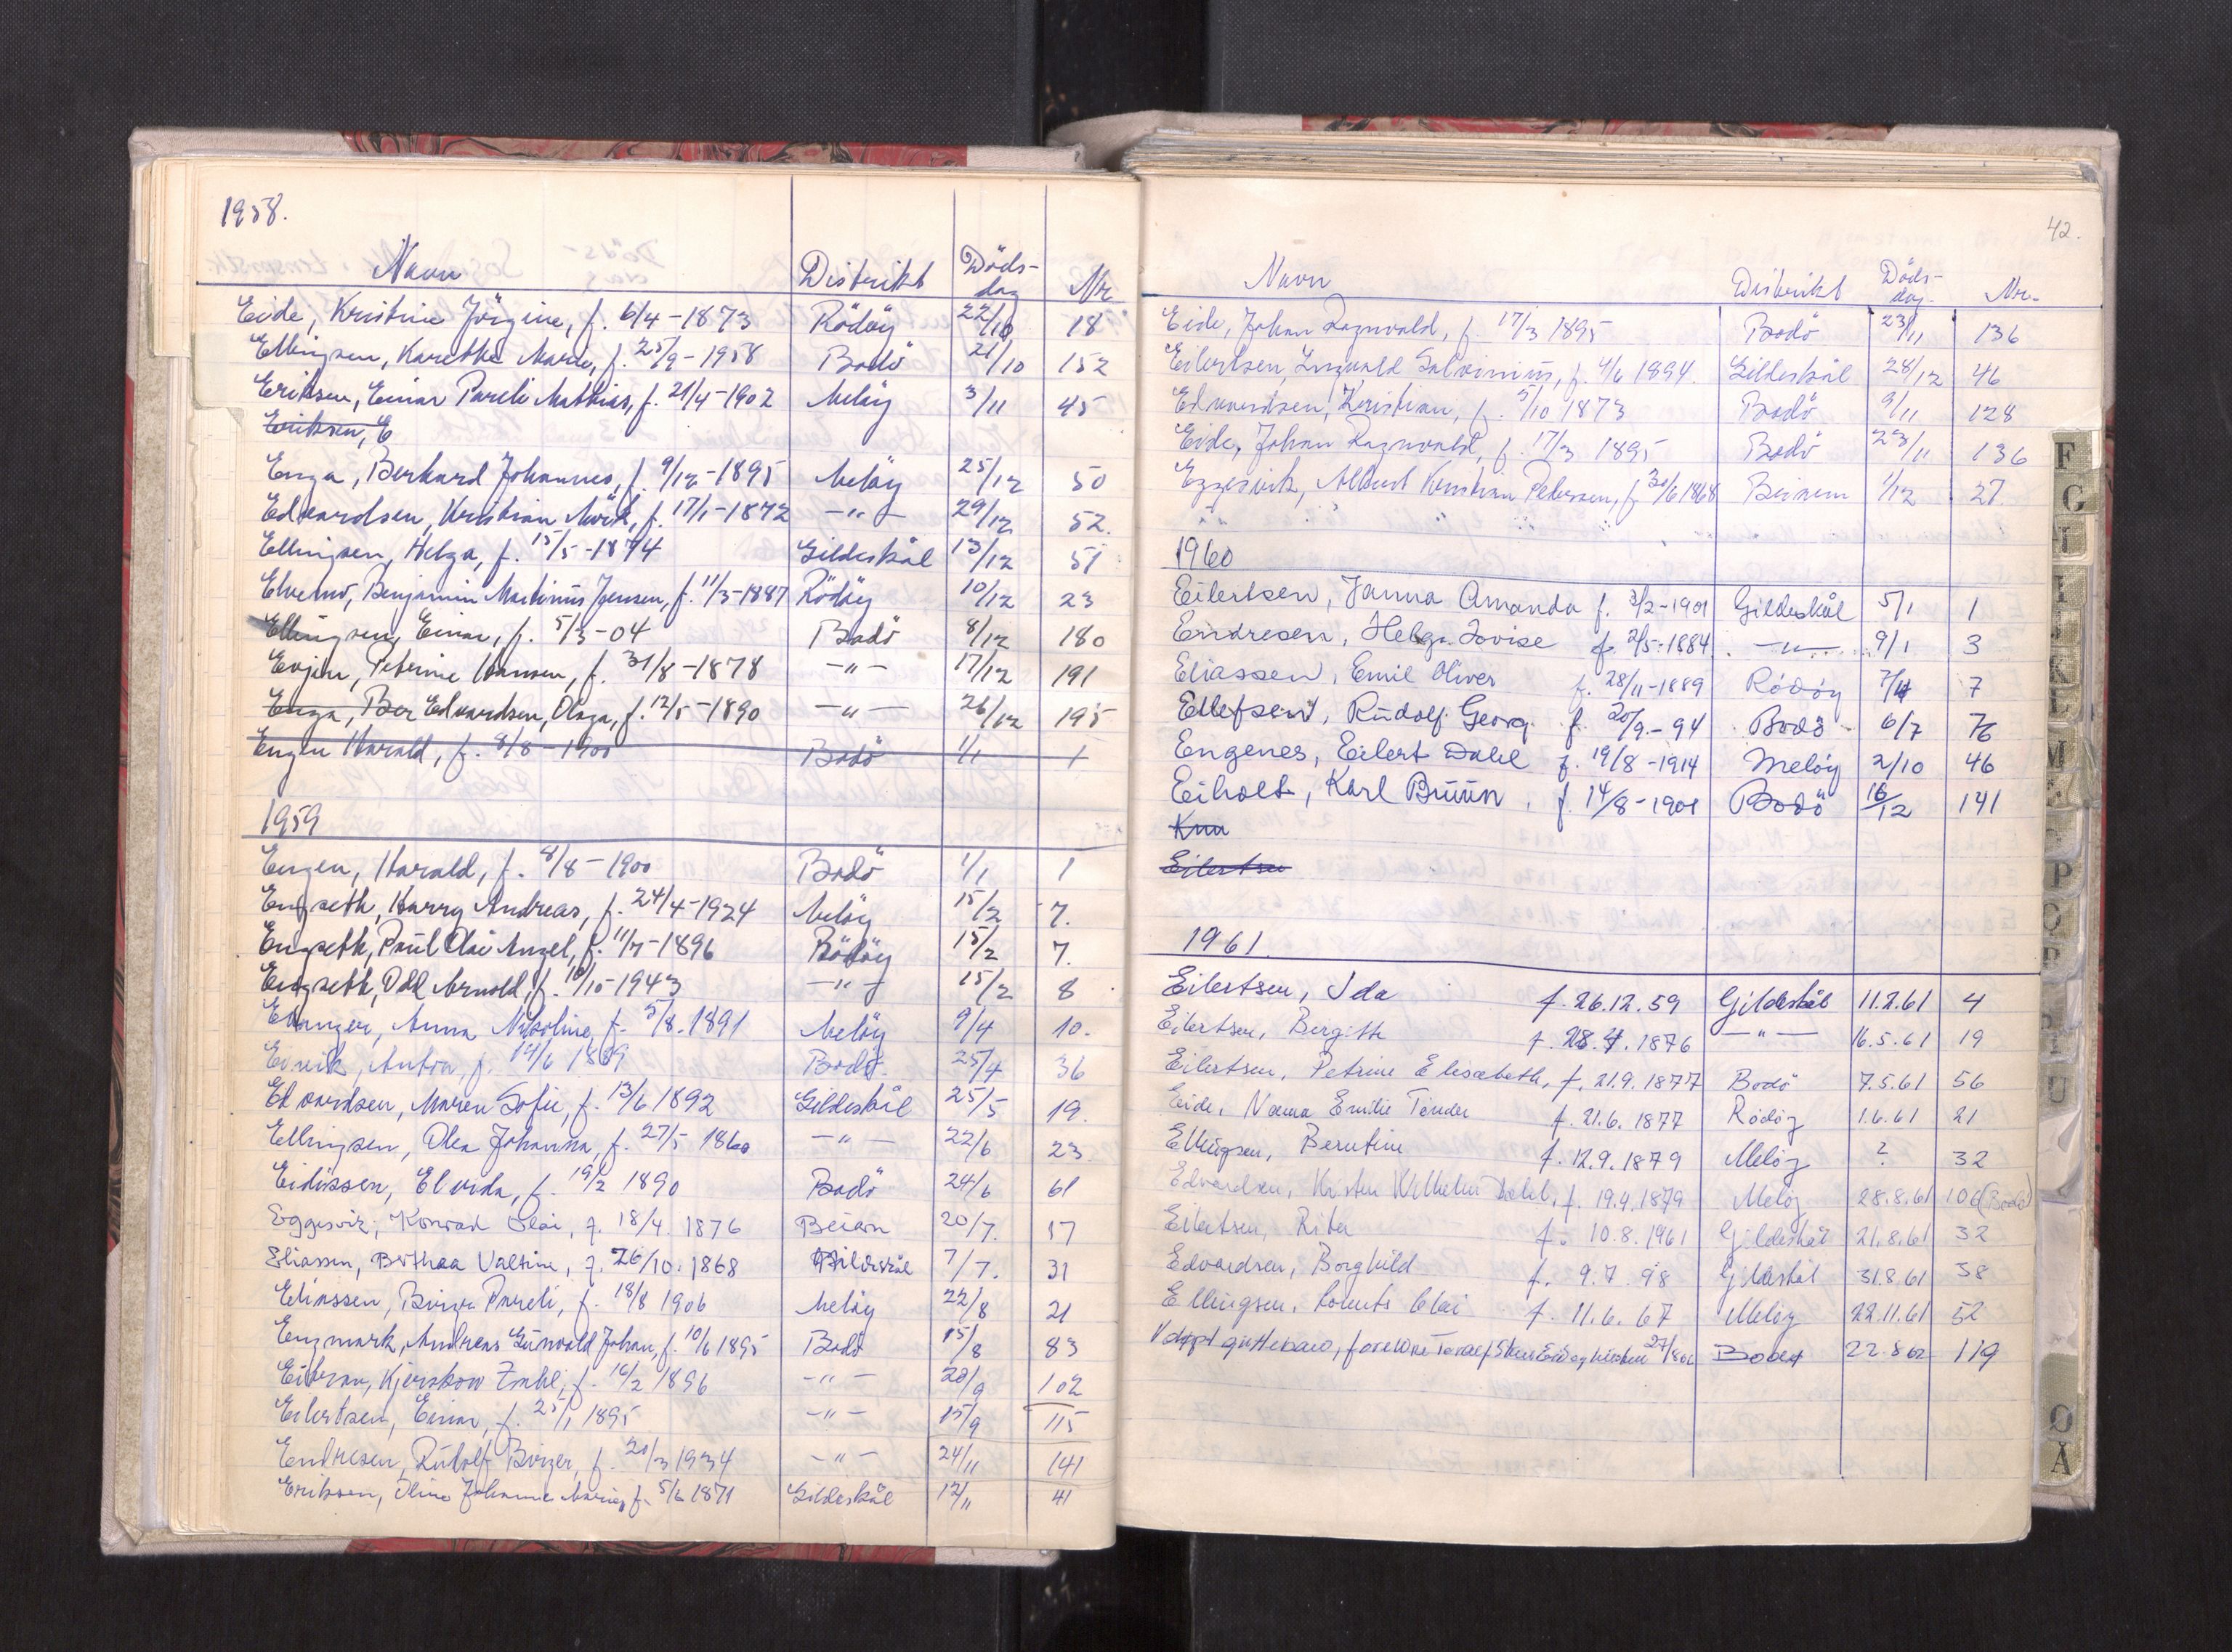 1958.
Navn Distrikt Döds-dag Nr
Eide, Kristine Jörgine, f. 6/4-1873 Rödöy 22/10 18
Ellingsen, Karethe Marie, f. 25/9-1958 Bodö 21/10 152
Eriksen, Einar Pareli Mathias, f. 21/4-1902 Melöy 3/11 45
Eriksen, E
Enga, Berhard Johannes, f. 9/12-1895 Melöy 25/12 50
Edvardsen, Kristian Mörk, f. 17/1-1872 -"- 29/12 52.
Ellingsen, Helga, f. 15/5-1874 Gildeskål 13/12 51
Elvemo, Benjamin Martinus Jensen, f. 11/3-1887 Rödöy 10/12 23
Ellingsen, Einar, f. 5/3-04 Bodö 8/12 180
Evjen, Petrine Hansen, f. 31/8-1878 -"- 17/12 191
Enga, Ber Edvardsen, Olaga, f. 12/5-1890 -"- 26/12 195
Engen Harald, f. 8/8-1900 Bodö 1/1 1
1959
Engen, Harald, f. 8/8-1900 Bodö 1/1 1
Engseth, Harry Andreas, f. 24/4-1924 Melöy 15/2 7.
Engseth, Paul Olai Angel, f. 11/7-1896 Rödöy 15/2 7.
Engseth, Odd Arnold, f. 10/10-1943 -"- 15/2 8
Anna Nikoline, f. 5/8.1891 Melöy 9/4 10.
Anton, f. 19/6 1889 Bodö 25/4 36
Edvardsen, Maren Sofie, f. 13/6 1892 Gildeskål 25/5 19.
Ellingsen, Olea Johanna, f. 27/5 1860 -"- 22/6 23
Eidissen, Elvida, f. 19/2 1890 Bodö 24/6 61
Eggesvik, Konrad Olai, f. 18/4. 1876 Beiarn 20/7. 17
Eliassen, Berthaa Valtine, f. 26/10. 1868 Gildeskål 7/7. 31
Eliassen, Birger Pareli, f. 18/8 1906 Melöy 22/8 21
Engmark, Andreas Gunvald Johan, f. 10/6 1895 Bodö 15/8 83
Kjerskow Zahl, f. 16/2 1896 -"- 20/9 102
Eilertsen, Einar, f. 25/1 1895 -"- 15/9 115
Endresen, Rudolf Birger, f. 20/3 1934 -"- 24/11 141
Eriksen, Oline Johanne Marie, f. 5/6 1871 Gildeskål 12/11 41
42.
Navn Distrikt Döds-dag. Nr.
Eide, Johan Ragnvald, f. 17/3 1895 Bodö 23/11 136
Eilertsen, Ingvald Salvinius, f. 4/6 1894. Gildeskål 28/12 46
Edvardsen, Kristian, f. 5/10 1873 Bodö 9/11 128
Eide, Johan Ragnvald, f. 17/3 1895 Bodö 23/11 136
Eggesvik, Albert Kristian Petersen, f. 30/6 1868 Beiarn 1/12 27.
1960
Eilertsen, Janna Amanda f. 3/2-1901 Gildeskål 5/1 1
Endresen, Helga Lovise f. 2/5-1884. -"- 9/1 3
Eliassen, Emil Oliver f. 28/11-1889 Rödöy 7/4 7
Ellefsen, Rudolf Georg f. 20/9.-94 Bodö 6/7 76
Engenes, Eilert Dahl f. 19/8-1914 Meløy 2/10 46
Eiholt, Karl Bruun, f. 14/8-1901 Bodö 16/12 141
Knu
Eilertsen
1961.
Eilertsen, Ida f. 26.12.59 Gildeskål 11.2.61 4
Eilertsen, Bergith f. 28.4.1876 -"- 16.5.61 19
Eilertsen, Petrine Elisabeth, f. 21.9.1877 Bodö 7.5.61 56
Eide, Nanna Emilie Tønder f. 21.6.1877 Rödöy 1.6.61 21
Ellingsen, Berntine f. 12.9.1879 Meløy ? 32
Edvardsen, Kristen Wilhelm Dahl, f. 19.4.1879 Meløy 28.8.61 106 (Bodö)
Eilertsen, Rita f. 10.8.1961 Gildeskål 21.8.61 32
Edvardsen, Borghild f. 9.7.98 Gildeskål 31.8.61 38
Ellingsen, Lorents Olai f. 11.6.67 Meløy 22.11.61 52
guttebarn, foreldre Bodø 22.8 62 119
F
G
P
U
Ø
Å